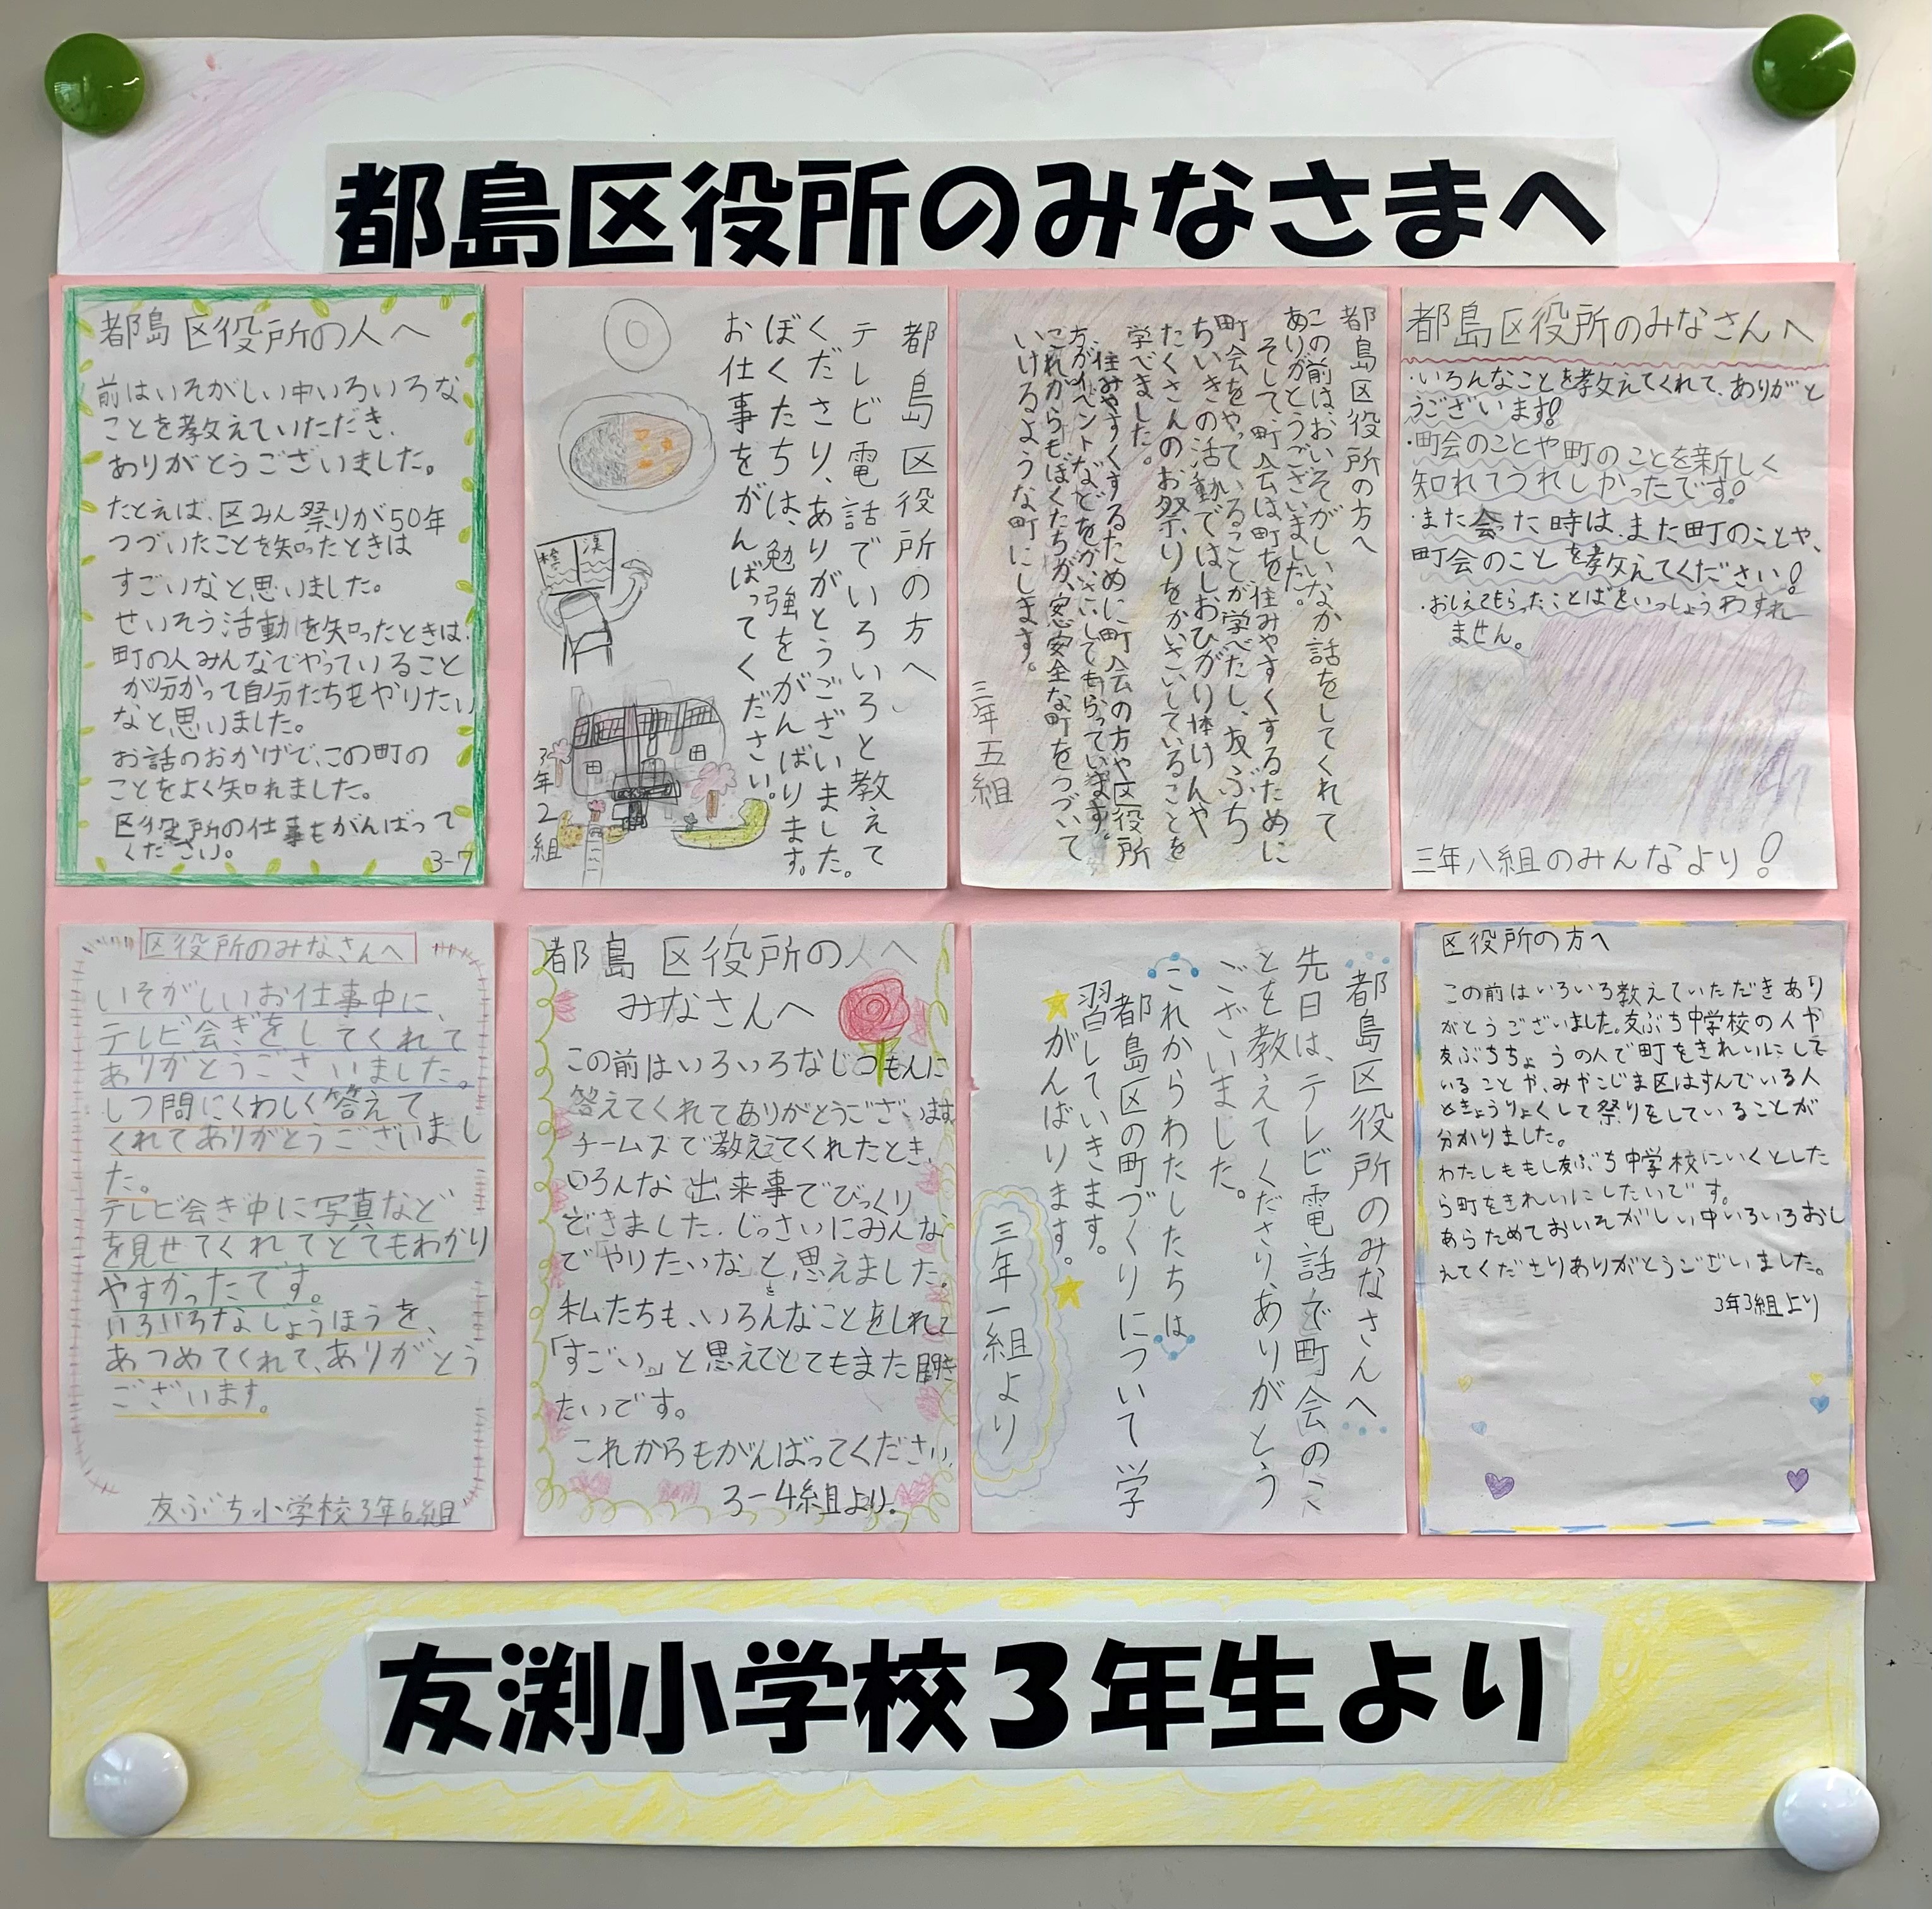 都島区役所のみなさまへ
都島区役所の人へ
前はいそがしい中いろいろな
ことを教えていただき、
ありがとうございました。
たとえば、区みん祭りが50年
つづいたことを知ったときは
すごいなと思いました。
せいそう活動を知ったときは、
町の人みんなでやっていること
が分かって自分たちもやりたい
なと思いました。
お話のおかげで、この町の
ことをよく知れました。
区役所の仕事もがんばって
ください。
3-7
都島区役所の方へ
テレビ電話でいろいろと教えて
くださり、ありがとうございました。
ぼくたちは、勉強をがんばります。
お仕事をがんばってください。
漢
3年2組
都島区役所の方へ
この前はおいそがしいなか話をしてくれて
ありがとうございました。
そして町会は町を住みやすくするために
町会をやっていることが学べたし、友ぶち
ちいきの活動ではしおひがり体けんや
たくさんのお祭りをかいさいしていることを
学べました。
住みやすくするために町会の方や区役所
方がイベントなどをかいさいしてもらっています。
これからもぼくたちが、安全な町をつづいて
いけるような町にします。
三年五組
都島区役所のみなさんへ
・いろんなことを教えてくれて、ありがと
うございます!
・町会のことや町のことを新しく
知れてうれしかったです!
・また会った時は、また町のことや、
町会のことを教えてください!
・おしえてもらったことばをいっしょうわすれ
ません。
三年八組のみんなより!
区役所のみなさんへ
いそがしいお仕事中に、
テレビ会ぎをしてくれて
ありがとうございました。
しつ問にくわしく答えて
くれてありがとうございまし
た。
テレビ会ぎ中に写真など
を見せてくれてとてもわかり
やすかったです。
いろいろなじょうほうを、
あつめてくれて、ありがとう
ございます。
友ぶち小学校3年6組
都島区役所の人へ
みなさんへ
この前はいろいろなしつもんに
答えてくれてありがとうございます
チームズで教えてくれたとき、
いろんな出来事でびっくり
どきました。じっさいにみんな
でやりたいなと思えました。
私たちも、いろんなことをしれて
「すごい。」と思えてとてもまた聞き
たいです。
これからもがんばってください。
3-4組より。
都島区役所のみなさんへ
先日は、テレビ電話で町会のこ
とを教えてくださり、ありがとう
ございました。
これからわたしたちは
都島区の町づくりについて学
習していきます。
がんばります。
三年一組より
区役所の方へ
この前はいろいろ教えていただきあり
がとうございました。友ぶち中学校の人や
友ぶちちょうの人で町をきれいにして
いることや、みやこじま区はすんでいる人
ときょうりょくして祭りをしていることが
分かりました。
わたしももし友ぶち中学校にいくとした
ら町をきれいにしたいです。
あらためておいそがしい中いろいろおし
えてくださりありがとうございました。
3年3組より
友渕小学校3年生より